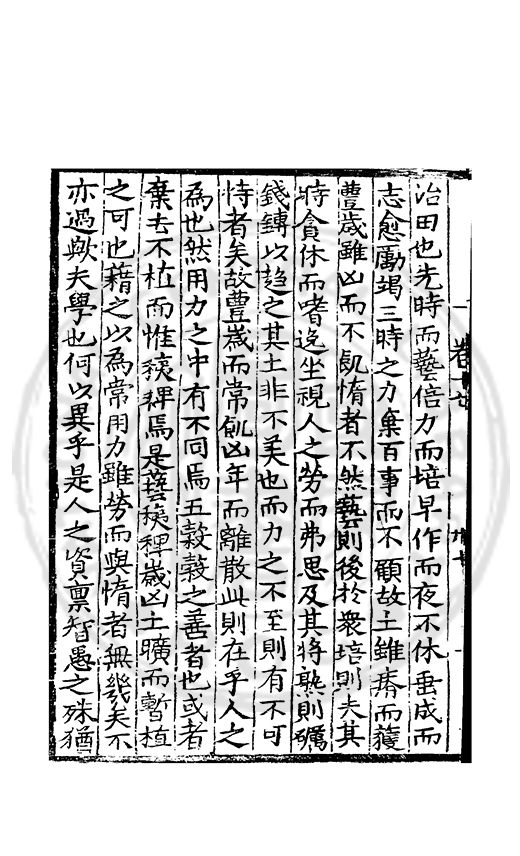 治田也先時而藝倍力而培早作而夜不休垂成而
志愈勵竭三時之力棄百事而不顧故土雖瘠而穫
豊歲雖凶而不飢惰者不然藝則後於衆培則失其
時貪休而嗜逸坐視人之勞而弗思及其將熟則礪
錢鎛以趍之其土非不美也而力之不至則有不可
恃者矣故豊歲而常飢凶年而離散此則在乎人之
為也然用力之中有不同焉五穀穀之善者也或者
棄去不植而惟稂稗焉是藝稂稗歲凶土曠而暫植
之可也藉之以為常用力雖勞而與惰者無幾矣不
亦過歟夫學也何以異乎是人之資禀智愚之殊猶